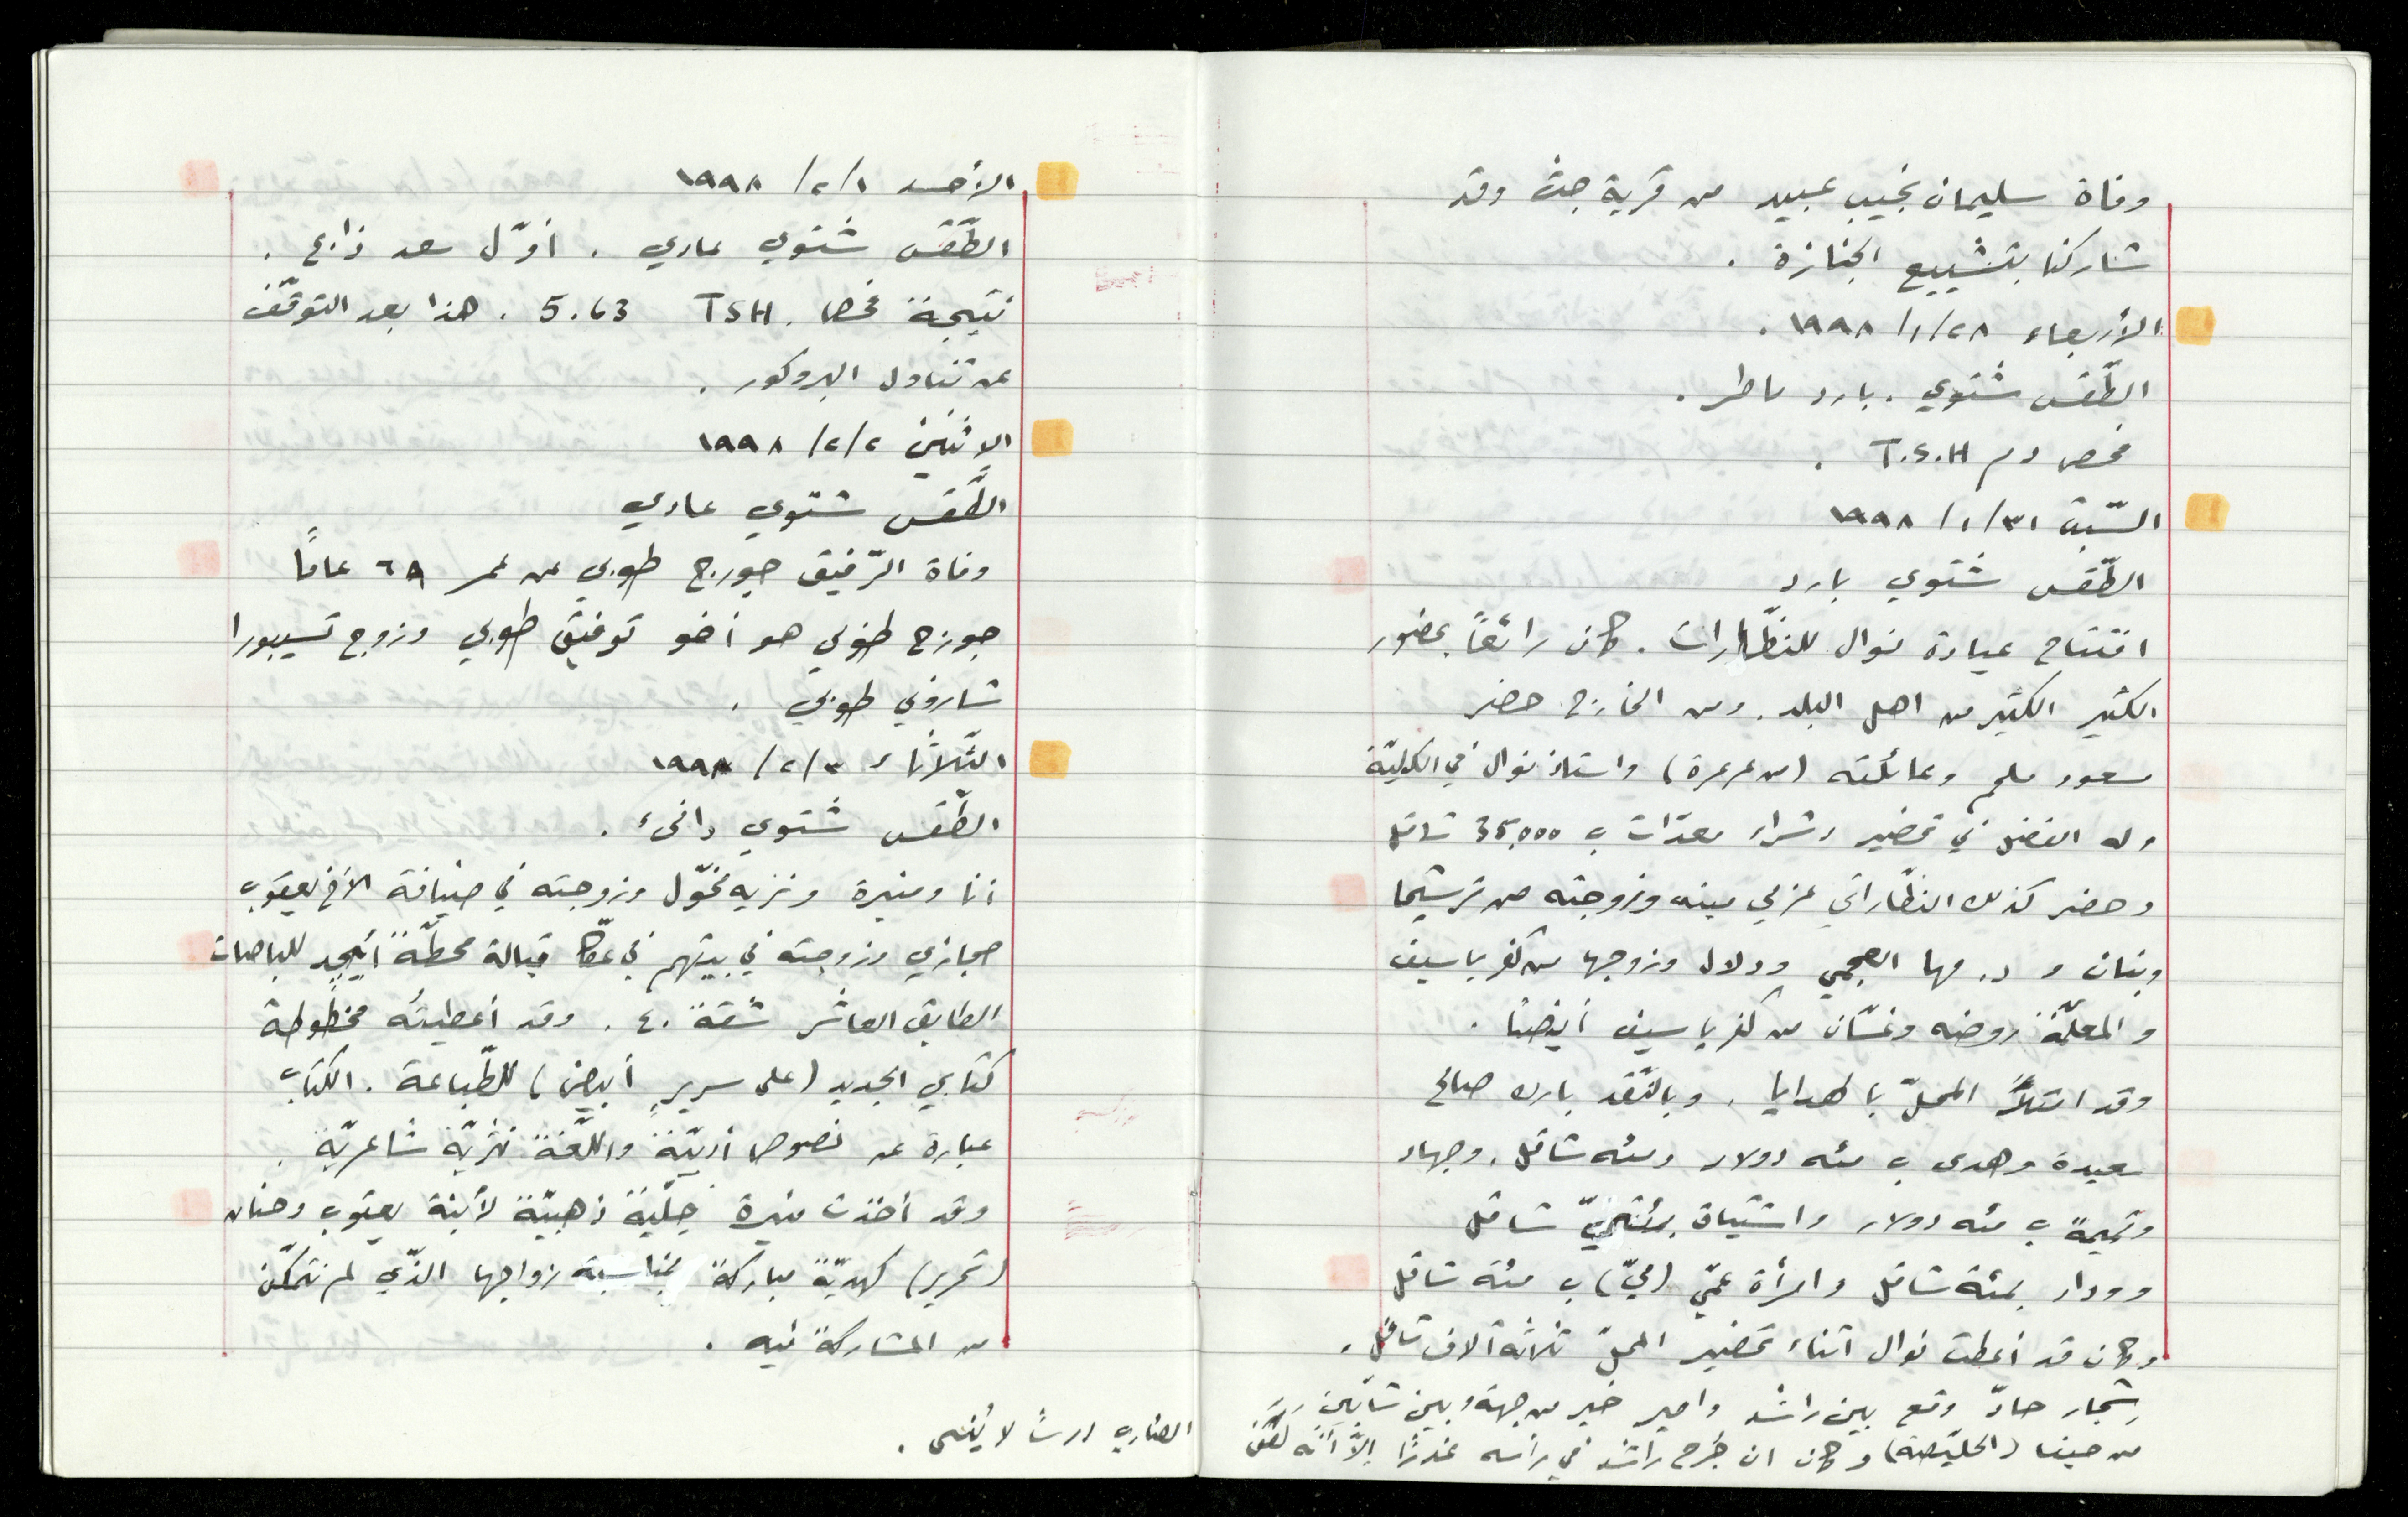 وفاة سليمان نجيب عبيد من قرية جث وقد
شاركنا بتشييع الجنازة .
الأربعاء ٢٨/١/١٩٩٨ .
الطّقس شتوي . بارد ماطر .
فحص دم T.S.H .
السّبت ٣١/١/١٩٩٨
الطّقس شتوي بارد
افتتاح عيادة نوال للنظّارات . كان رائعًا بحضور
الكثير الكثير من اهل البلد . ومن الخارج حضر
سعود ملحم وعائلته (من عرعرة) واستاذ نوال في الكليّة
وله الفضل في تحضير وشراء معدّات ب 35,000 شاقل
وحضر كذلك النظّاراتي عزمي وزوجته من ترشيحا
وبنان و د. مها العجمي ودلال وزوجها من كفر ياسيف
والمعلّمة روضه وغسّان من كفر ياسيف أيضًا .
وقد امتلأ المحلّ بالهدايا . وبالنّقد بارك صالح
سعيدة وهدى ب مئه دولار ومئه شاقل . وجهاد
وتميمة ب مئه دولار واشتياق بمئتيّ شاقل
ووداد بمئة شاقل وامرأة عمّي (ميّ) ب مئة شاقل
وكان قد أعطت نوال أثناء تحضير المحلّ ثلاثة آلاف شاقل .
شجار حادّ وقع بين راشد وامير خير من جهة وبين شابّين
من حيفا (الحليصة) وكان ان جُرح راشد في رأسه غدرًا إلاّ أنّه لقّن
الضارب درسًا لا يُنسى .
الأحد ١/٢/١٩٩٨
الطّقس شتوي عادي . أوّل سعد ذابح .
نتيجة فحص TSH 5.63 . هذا بعد التوقّف
عن تناول البروكور .
الإثنين ٢/٢/١٩٩٨
الطّقس شتوي عادي
وفاة الرّفيق جورج طوبي عن عمر ٦٩ عامًا
جورج طوبي هو أخو توفيق طوبي وزوج تسيبورا
شاروني طوبي .
الثّلاثاء ٣/٢/١٩٩٨
الطّقس شتوي دافئ .
أنا ومنيرة ونزيه مخّول وزوجته في ضيافة الأخ يعقوب
حجازي وزوجته في بيتهم في عكّا قبالة محطّة أيجد للباصات
الطابق العاشر شقة ٤٠ . وقد أعطيتُه مخطوطة
كتابي الجديد (على سريرٍ أبيض) للطّباعة . الكتاب
عبارة عن نصوص أدبيّة واللّغة نثريّة شاعريّة .
وقد أخذت منيرة حِليَة ذهبيّة لأبنة يعقوب وحنان
(تحرير) كهديّة مباركة بمناسبة زواجها الذّي لم نتمكّن
من المشاركة فيه .